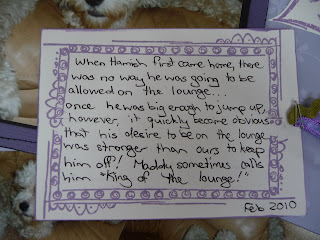 When Hamish first came home, there
was no way he was going to be
allowed on the lounge...
once he was big enough to jump up,
however, it quickly became obvious
that his desire to be on the lounge
was stronger than ours to keep
him off! sometimes calls
him "King of the lounge!"
Feb 2010